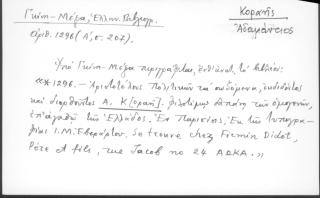 Γκίνη - Μέξα, Ἑλλην. Βιβλιογρ.
ἀριθ. 1296 (Α', σ. 207).
Κοραῆς
Ἀδαμάντιος
Ὑπὸ Γκίνη - Μέξα περιγράφεται, ἐνθ' ἀνωτ. τὸ βιβλίον:
«*1296. - Ἀριστοτέλους Πολιτικῶν τὰ σωζόμενα, ἐκδιδόντος
καὶ διορθοῦντος Α. Κ[οραῆ]. φιλοτίμῳ δαπάνῃ τῶν ὁμογενῶν,
ἐπ' ἀγαθῷ τῆς Ἑλλάδος. Ἐν Παρισίοις, Ἐκ τῆς Τυπογρα-
φίας Ι. Μ. Ἐβεράρτου. Se trouve chez Firmin Didot,
Père et fils, rue Jacob no 24 ΑΩΚΑ.»